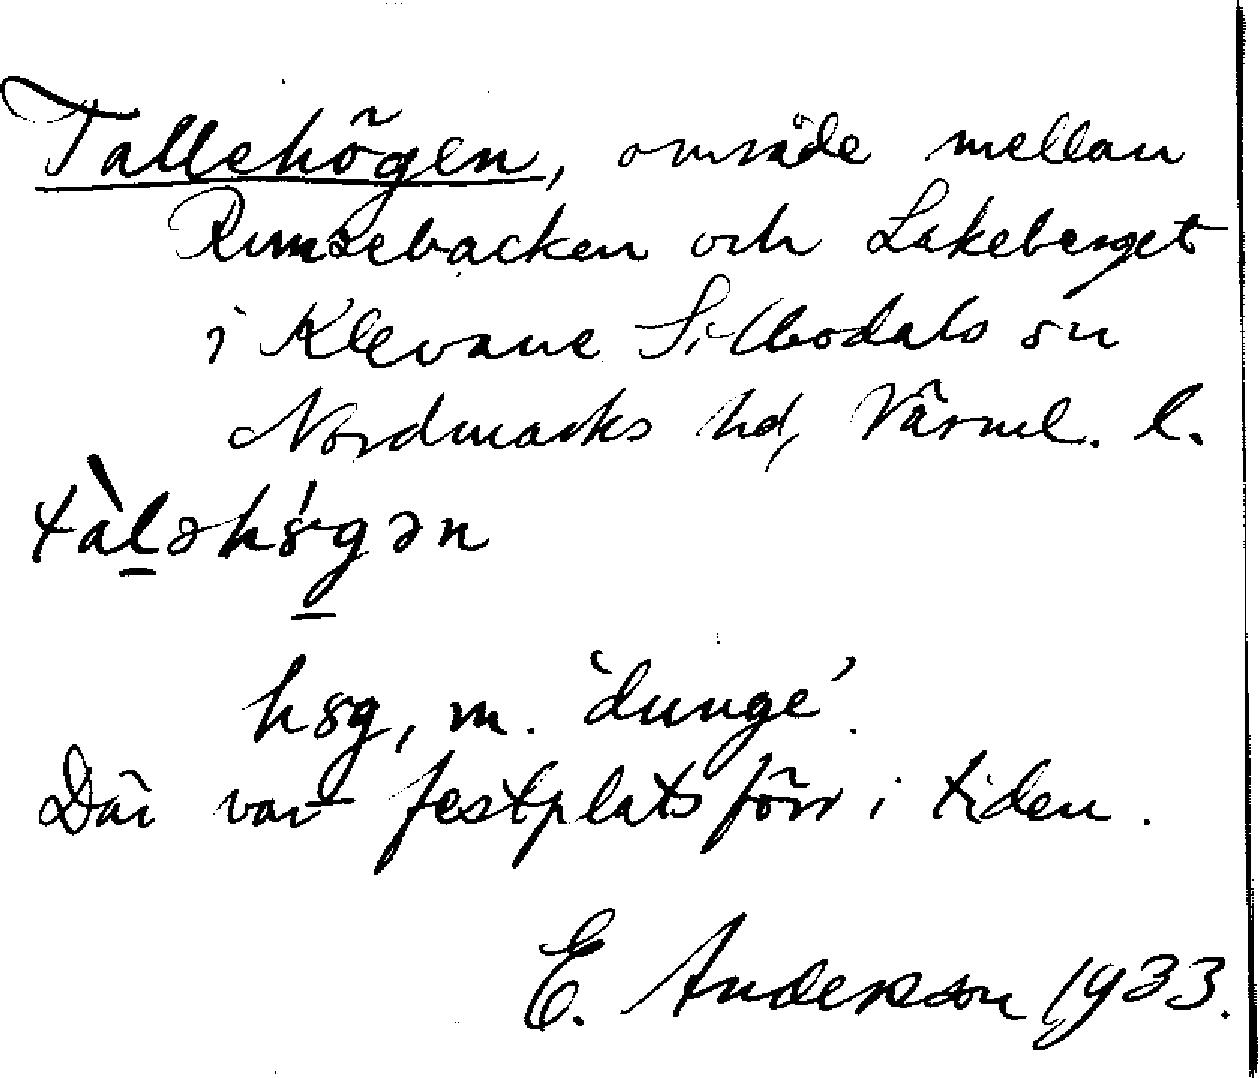 Tallehögen, område mellan
Rumsebacken och Lakeberget
i Klevane Silbodals sn
Nordmarks hd, Värml. l.
tàləhǿgən
høg, m. 'dunge'.
Där var festplats förr i tiden.
E. Anderson 1933.